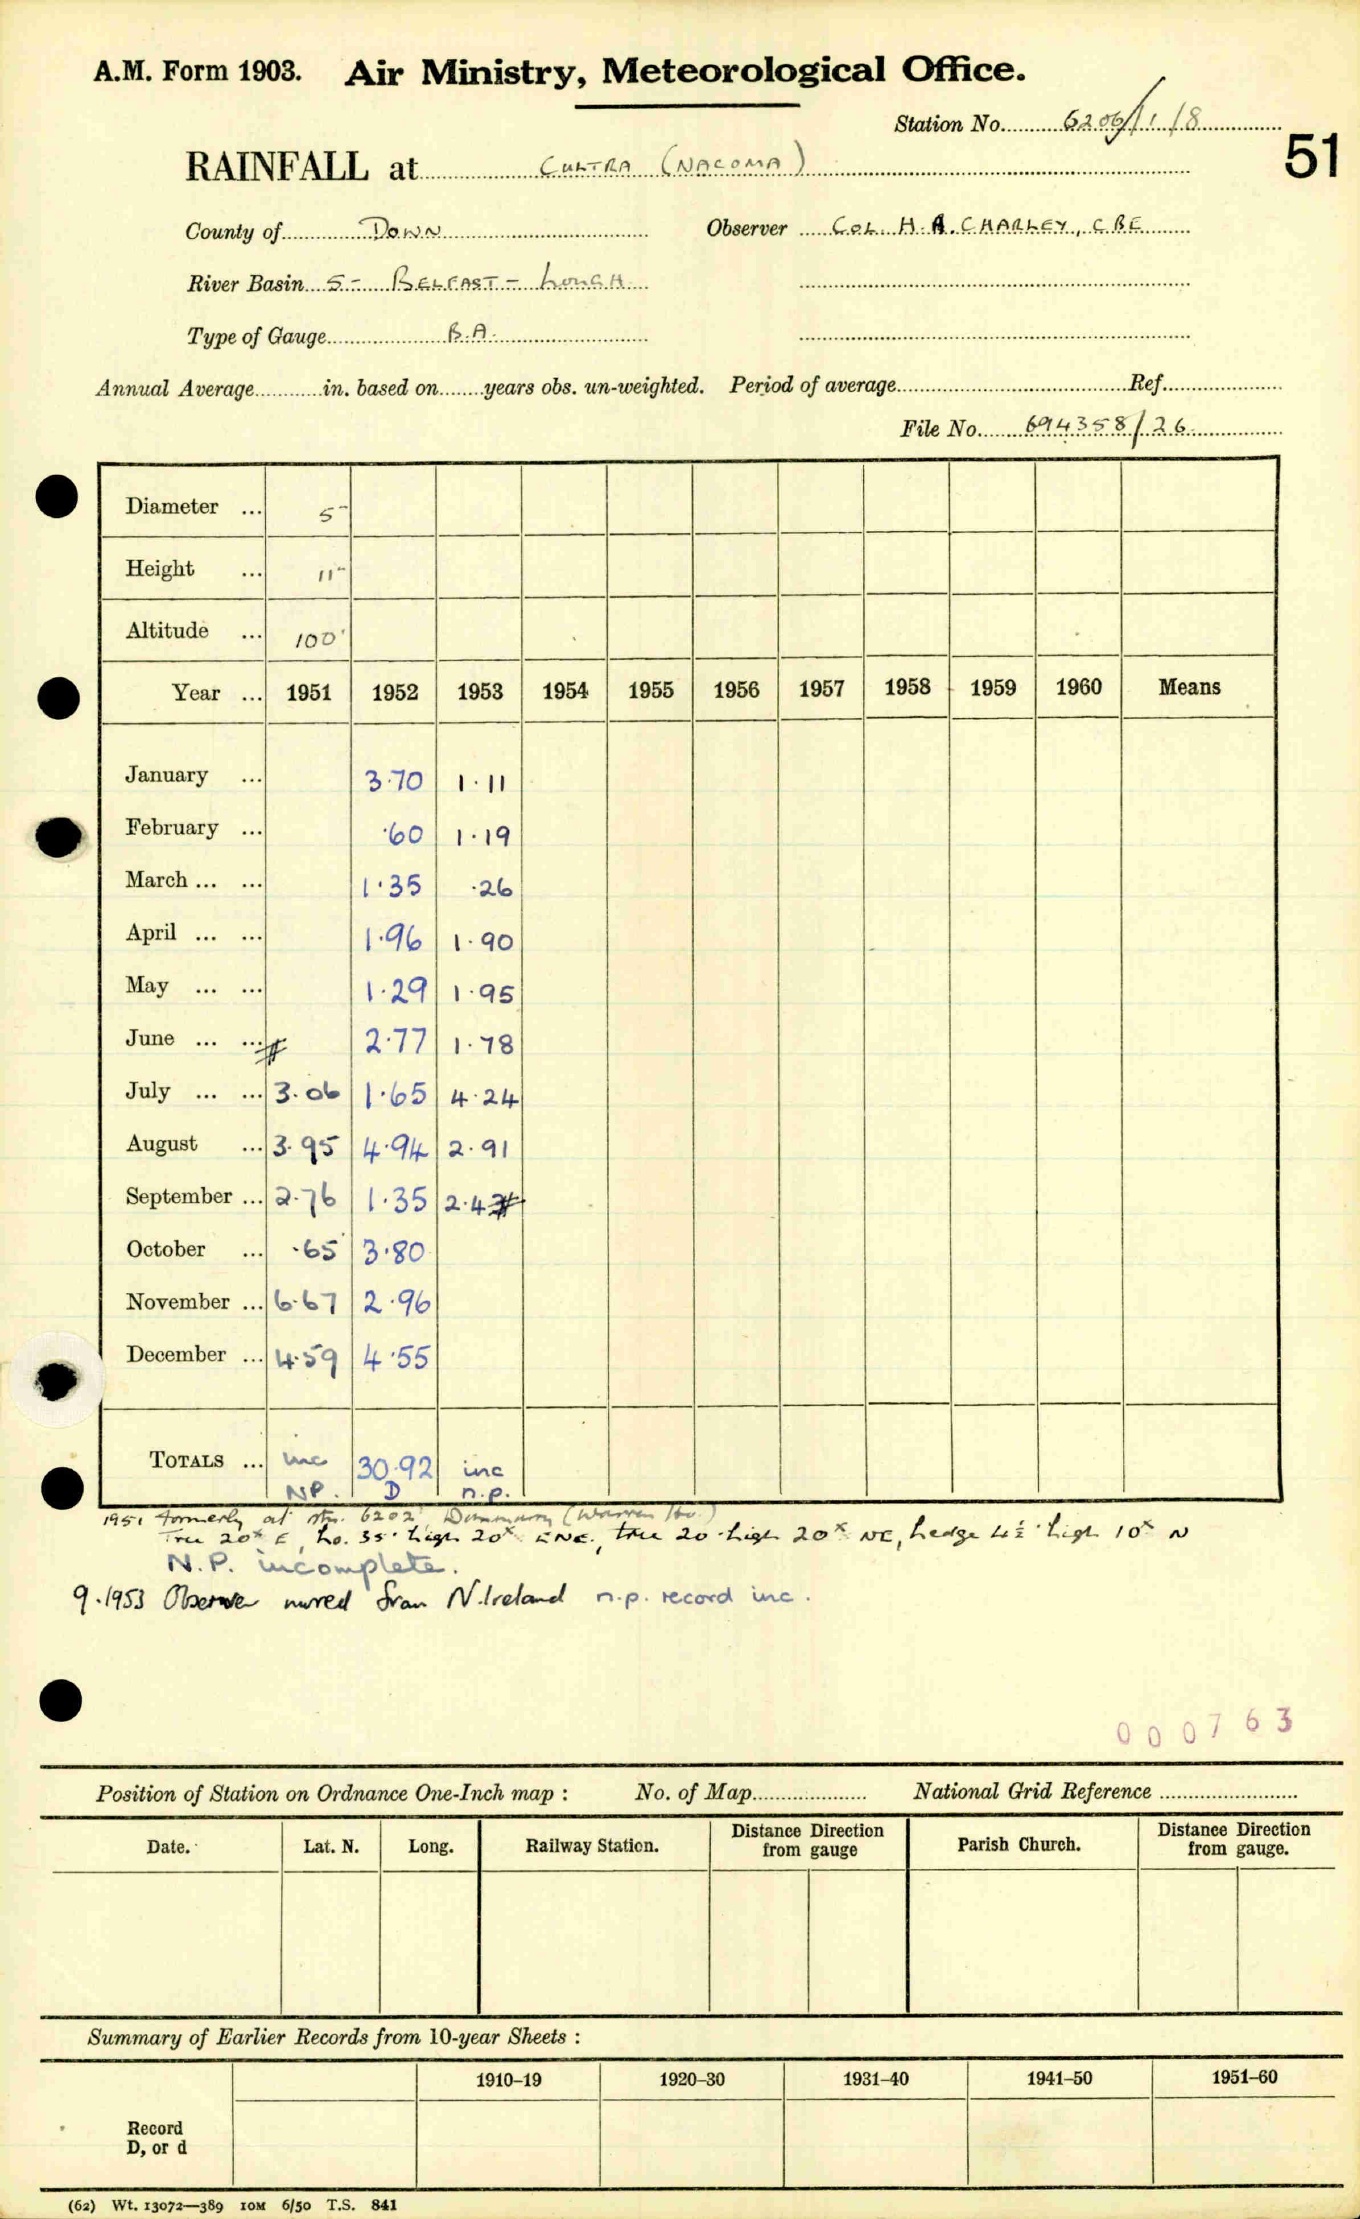 A.M. Form 1903. Air Ministry, Meteorological Office.
Station No. 6206/1/8
51
RAINFALL at CULTRA (NACOMA)
County of DOWN Observer COL. H. A. CHARLEY, CBE
River Basin 5 - BELFAST - LOUGH
Type of Gauge B.A.
Annual Average in. based on years obs. un-weighted. Period of average Ref.
File No. 694358/26
Diameter ... 5"
Height ... 11"
Altitude ... 100'
Year ... 1951 1952 1953 1954 1955 1956 1957 1958 1959 1960 Means
January ... 3.70 1.11
February ... .60 1.19
March ... ... 1.35 .26
April ... ... 1.96 1.90
May ... ... 1.29 1.95
June ... ... 2.77 1.78
July ... ... 3.06 1.65 4.24
August ... 3.95 4.94 2.91
September ... 2.76 1.35 2.43
October ... .65 3.80
November ... 6.67 2.96
December ... 4.59 4.55
TOTALS ... inc 30.92 inc
NP. D n.p.
1951 formerly at stn. 6202 (Warren Ho.)
Tree 20x E, ho. 35' high 20x ENE, tree 20 high 20x NE, hedge 4½' high 10x N
N.P. incomplete.
9.1953 Observer moved from N.Ireland n.p. record inc.
000763
Position of Station on Ordnance One-Inch map : No. of Map National Grid Reference
Date. Lat. N. Long. Railway Station. Distance Direction from gauge Parish Church. Distance Direction from gauge.
Summary of Earlier Records from 10-year Sheets :
1910–19 1920–30 1931–40 1941–50 1951–60
Record
D, or d
(62) Wt. 13072—389 10M 6/50 T.S. 841